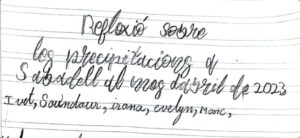 Reflexió sobre
los precipitacions d
Sabadell al mes dabril de 2023
Ivet, Soundour, irana, evelyn, Marc,